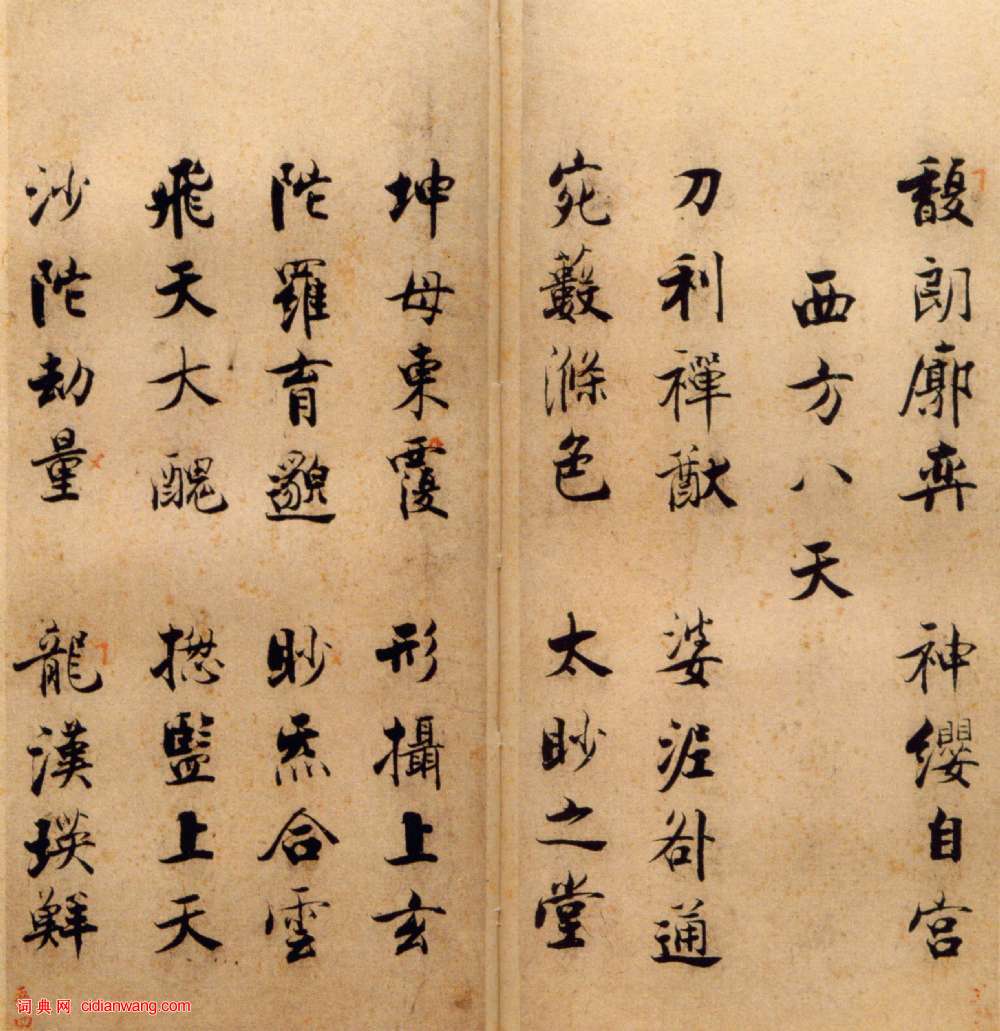 馥朗廓弈　神纓自宮
西方八天
刀利禪猷　婆泥咎通
宛藪滌色　太眇之堂
坤母東覆　形攝上玄
陁羅育邈　眇炁合雲
飛天大醜　揔監上天
沙陁劫量　龍漢瑛鮮
词典网 cidianwang.com